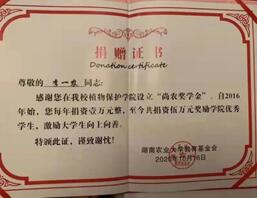 捐赠证书
Donation certificate
尊敬的 李一农 同志:
感谢您在我校植物保护学院设立“尚农奖学金”。自2016
年始,您每年捐资壹万元整,至今共捐资伍万元奖励学院优秀
学生,激励大学生向上向善。
特颁此证,谨致谢忱!
湖南农业大学教育基金会
2020年10月16日